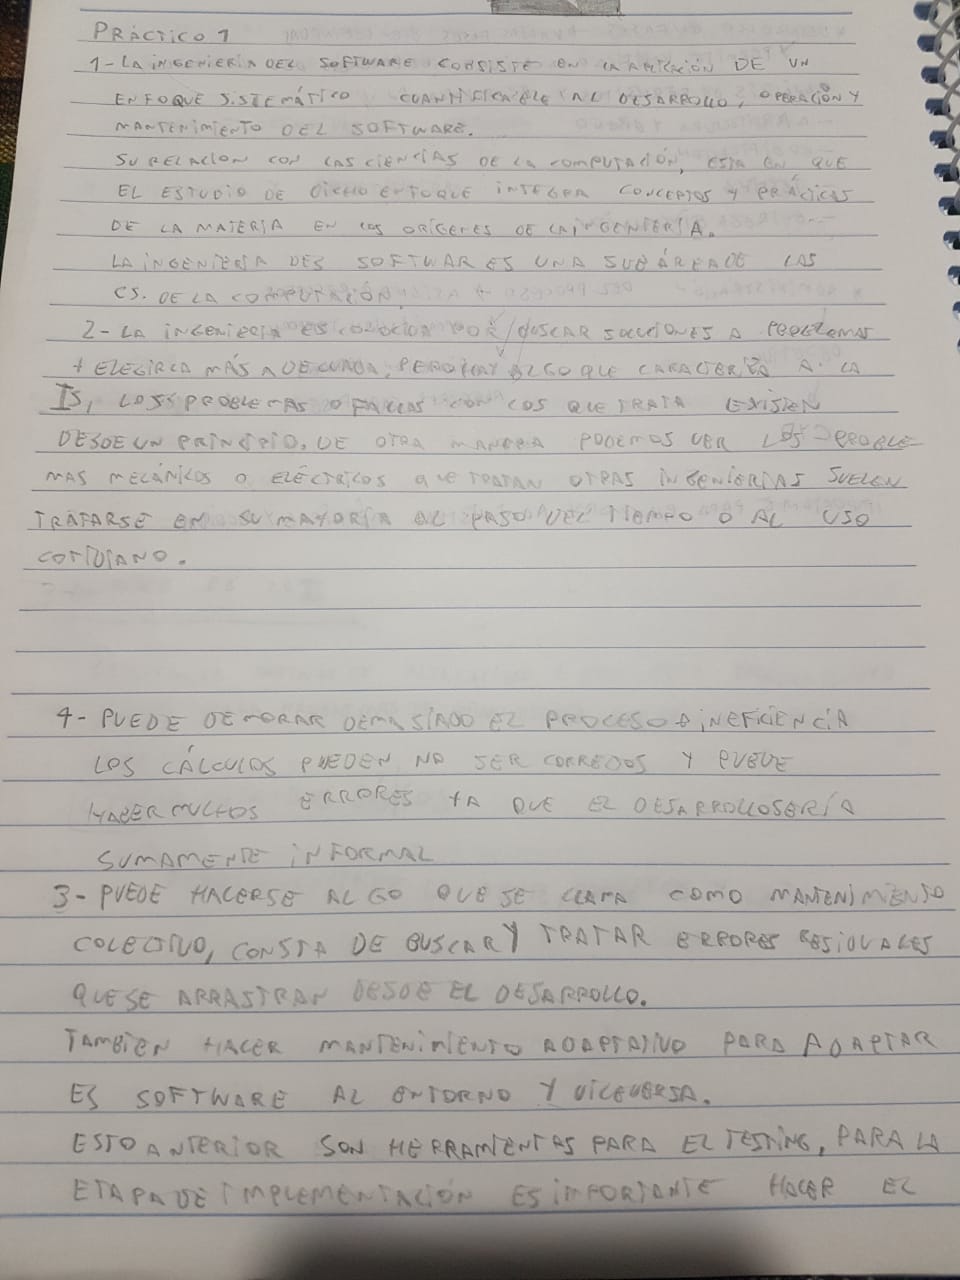 PRÁCTICO 1
1- LA INGENIERIA DEL SOFTWARE CONSISTE EN LA APLICACIÓN DE UN
ENFOQUE SISTEMÁTICO CUANTIFICABLE AL DESARROLLO, OPERACIÓN Y
MANTENIMIENTO DEL SOFTWARE.
SU RELACION CON LAS CIENCIAS DE LA COMPUTACIÓN, ESTA EN QUE
EL ESTUDIO DE DICHO ENFOQUE INTEGRA CONCEPTOS Y PRÁCTICAS
DE LA MATERIA EN LOS ORÍGENES DE LA INGENIERÍA.
LA INGENIERIA DES SOFTWAR ES UNA SUBÁREA DE LAS
CS. DE LA COMPUTACIÓN.
2- LA INGENIERIA ES CONOCIDA POR BUSCAR SOLUCIONES A PROBLEMAS
Y ELEGIR LA MÁS ADECUADA, PERO HAY ALGO QUE CARACTERIZA A LA
IS, LOS PROBLEMAS O FALLAS CON LOS QUE TRATA EXISTEN
DESDE UN PRINCIPIO, DE OTRA MANERA PODEMOS VER LOS PROBLE-
MAS MECÁNICOS O ELÉCTRICOS QUE TRATAN OTRAS INGENIERIAS SUELEN
TRATARSE EN SU MAYORÍA AL PASO DEL TIEMPO O AL USO
COTIDIANO.
4- PUEDE DEMORAR DEMASIADO EL PROCESO INEFICIENCIA
LOS CÁLCULOS PUEDEN NO SER CORREDOS Y PUEDE
HABER MUCHOS ERRORES YA QUE EL DESARROLLO SERÍA
SUMAMENTE INFORMAL
3- PUEDE HACERSE ALGO QUE SE LLAMA COMO MANTENIMIENTO
COLECTIVO, CONSTA DE BUSCAR Y TRATAR ERRORES RESIDUALES
QUE SE ARRASTRAN DESDE EL DESARROLLO.
TAMBIEN HACER MANTENIMIENTO ADAPTATIVO PARA ADAPTAR
ES SOFTWARE AL ENTORNO Y VICEVERSA.
ESTO ANTERIOR SON HERRAMIENTAS PARA EL TESTING, PARA LA
ETAPA DE IMPLEMENTACIÓN ES IMPORTANTE HACER EL